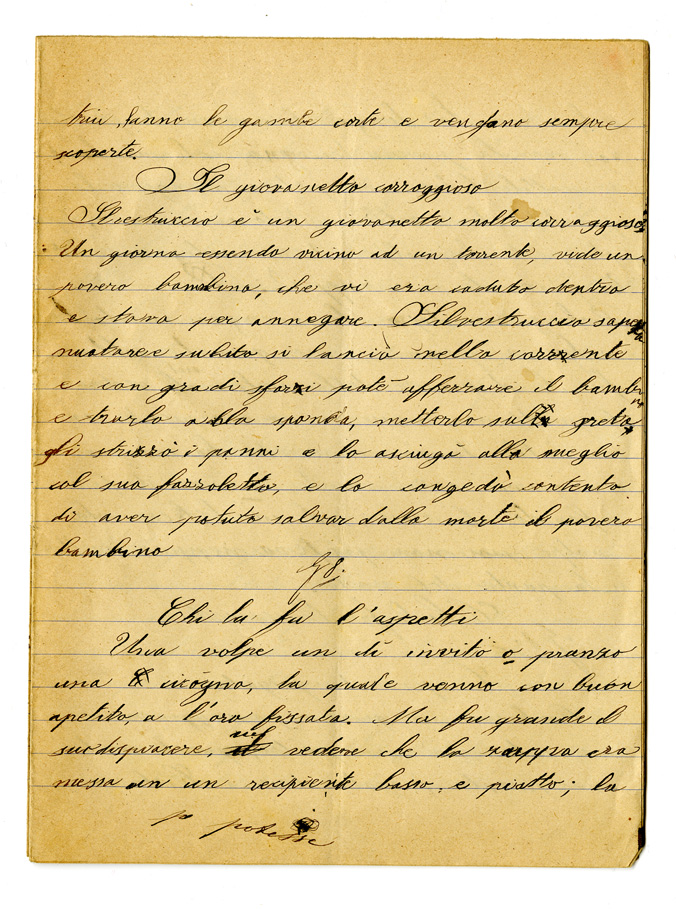 trui, fanno le gambe corte e vengano sempre
scoperte.
Il giovanetto corraggioso
Silvestruccio è un giovanetto molto corraggioso
Un giorno essendo vicino ad un torrente, vide un
povero bambino, che vi era caduto dentro
e stava per annegare. Silvestruccio sape
nuotare e subito si lanciò nella corrente
e con gradi sforzi potè afferrare il bambi
e trarlo alla sponda, metterlo sul greto
gli strizzò i panni e lo asciugò alla mueglio
col suo fazzoletto, e lo congedò contento
di aver potuto salvar dalla morte il povero
bambino
Chi la fa l'aspetti
Una volpe un dì invitò a pranzo
una cicogna, la quale venno con buon
apetito, a l'ora fissata. Ma fu grande il
suo dispiacere, nel vedere che la zuppa era
messa in un recipiente basso e piatto; la
potesse